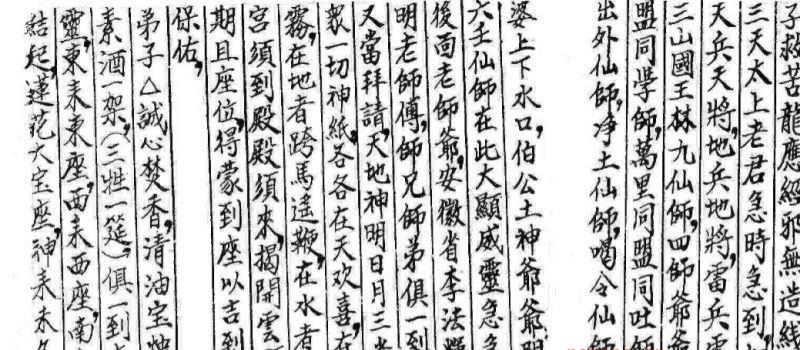 子救苦龍應經邪無造綫
三天太上老君急時急到
天兵天將，地兵地將，雷兵雷
三山國王林九仙師，四師爺爺
盟同學師，萬里同盟同吐師
出外仙師，净土仙師，喝令仙師
婆上下水口，伯公土神爺爺，
六壬仙師在此大顯威靈急急
後面老師爺，安徽省李法
明老師傅，師兄師弟俱一到
又當拜請，天地神明日月三光
眾一切神紙，各各在天欢喜，在
霧，在地者跨馬遙鞭，在水者
宮須到殿殿須來，揭開雲
期且座位，得蒙到座以吉到
保佑，
弟子△誠心焚香，清油宝燭
素酒一架，(三牲一筵)俱一到
靈，東耒東座，西耒西座，南
結起，蓮花大宝座，神耒未